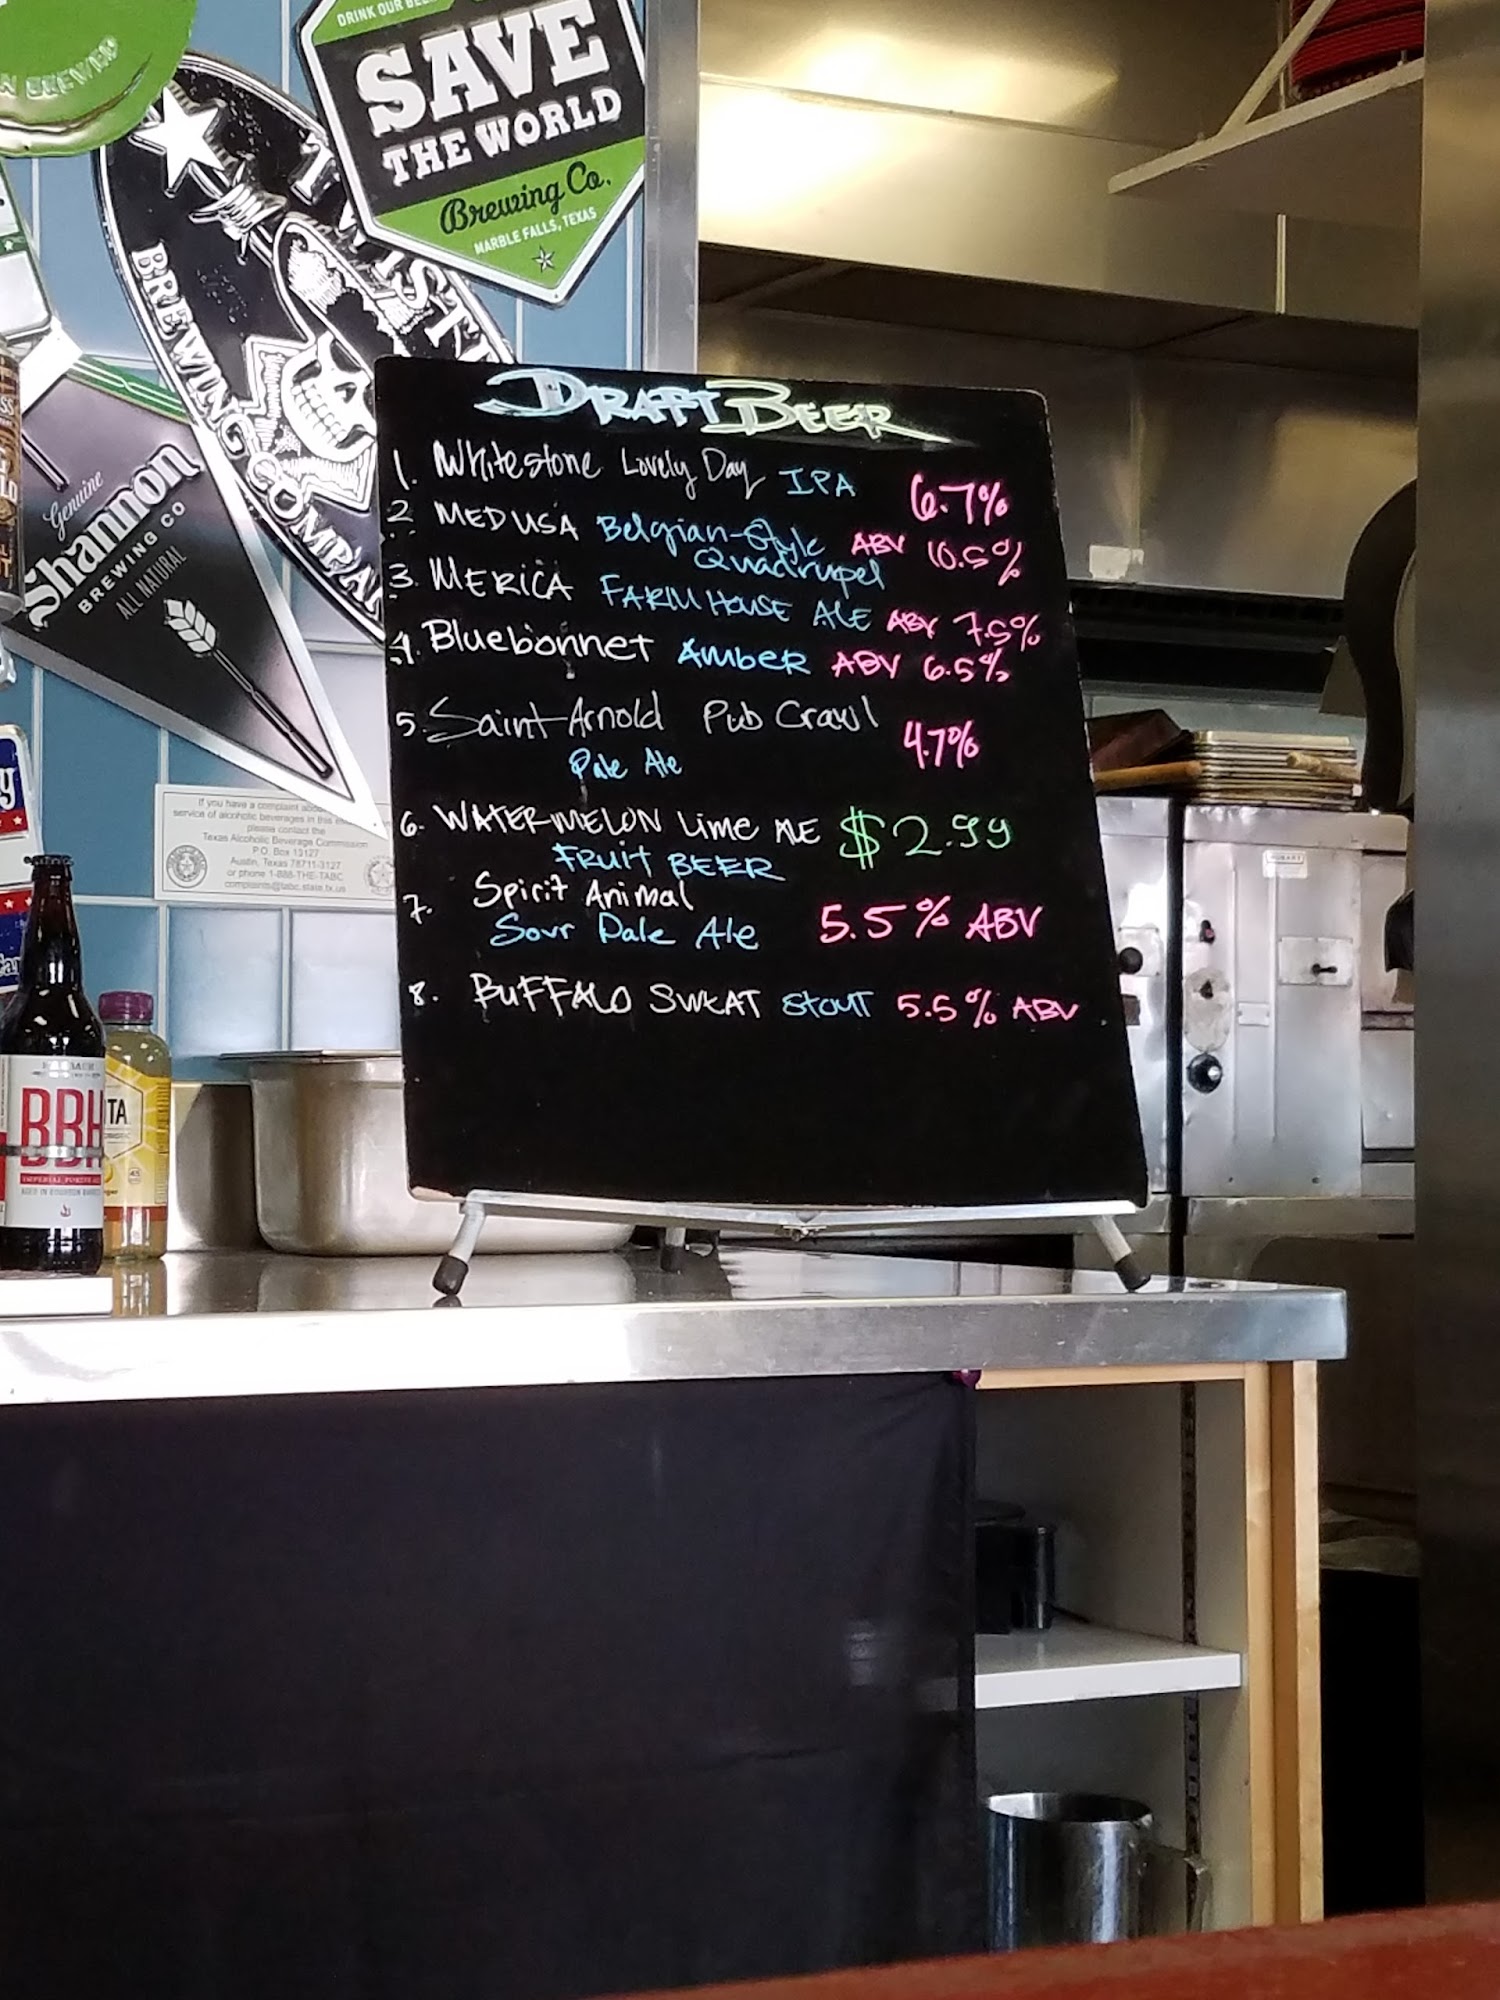 N BREWED
DRINK OUR BEER
SAVE
THE WORLD
Brewing Co.
MARBLE FALLS, TEXAS
BREWING COMPA
Genuine
Shannon
BREWING CO
ALL NATURAL
DRAFT BEER
1. Whitestone Lovely Day IPA 6.7%
2 MEDUSA Belgian-Style Quadrupel ABV 10.5%
3. MERICA FARMHOUSE ALE ABV 7.5%
4. Bluebonnet AMBER ABV 6.5%
5. Saint Arnold Pub Crawl 4.7%
Pale Ale
6. WATERMELON Lime ALE $2.99
FRUIT BEER
7. Spirit Animal
Sour Pale Ale 5.5% ABV
8. BUFFALO SWEAT STOUT 5.5% ABV
If you have a complaint
service of alcoholic beverages in this
please contact the
Texas Alcoholic Beverage Commission
P.O. Box 13127
Austin, Texas 78711-3127
or phone 1-888-THE-TABC
complaints@tabc.state.tx.us
BBH
IMPERIAL PORTER
AGED IN BOURBON BARRELS
TA
45
HOBART